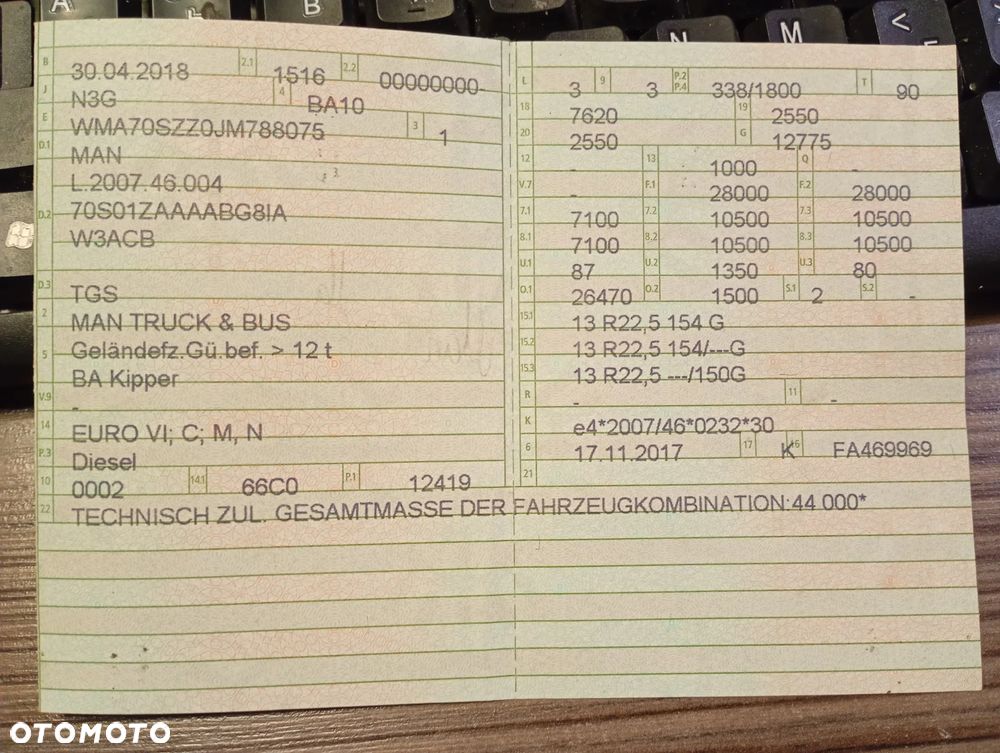 B 30.04.2018 2.1 1516 2.2 00000000-
J N3G 4 BA10
E WMA70SZZ0JM788075 3 1
D.1 MAN
L.2007.46.004
D.2 70S01ZAAAABG8IA
W3ACB
D.3 TGS
2 MAN TRUCK & BUS
5 Geländefz.Gü.bef. > 12 t
BA Kipper
V.9 -
14 EURO VI; C; M, N
P.3 Diesel
10 0002 14.1 66C0 P.1 12419
L 3 9 3 P.2 P.4 338/1800 T 90
18 7620 19 2550
20 2550 G 12775
12 - 13 1000 Q -
V.7 - F.1 28000 F.2 28000
7.1 7100 7.2 10500 7.3 10500
8.1 7100 8.2 10500 8.3 10500
U.1 87 U.2 1350 U.3 80
O.1 26470 O.2 1500 S.1 2 S.2 -
15.1 13 R22,5 154 G
15.2 13 R22,5 154/---G
15.3 13 R22,5 ---/150G
R - 11 -
K e4*2007/46*0232*30
6 17.11.2017 17 K 16 FA469969
21
22 TECHNISCH ZUL. GESAMTMASSE DER FAHRZEUGKOMBINATION:44 000*
A
B
N
M
<
OTOMOTO